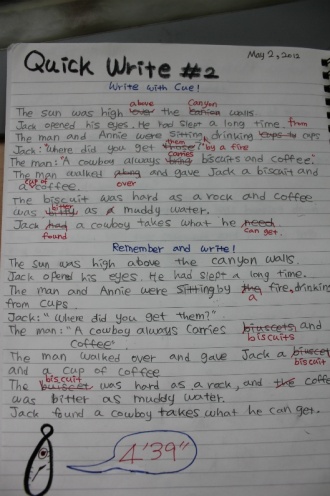 May 2, 2012
Quick Write #2
Write with Cue!
above canyon
The sun was high over the canyon walls.
Jack opened his eyes. He had slept a long time. from
The man and Annie were sitting, drinking cups to cups
them by a fire
Jack: "Where did you get those?"
carries
The man: "A cowboy always bring biscuits and coffee."
The man walked along and gave Jack a biscuit and
cup of over
a coffee.
The biscuit was hard as a rock and coffee
bitter
was as a muddy water.
Jack had a cowboy takes what he need
found can get.
Remember and write!
The sun was high above the canyon walls.
Jack opened his eyes. He had slept a long time.
The man and Annie were sitting by the fire, drinking
a
from cups.
Jack: "Where did you get them?"
The man: "A cowboy always carries biuscets and
coffee" biscuits
The man walked over and gave Jack a biuscet
and a cup of coffee biscuit
biscuit
The buiscet was hard as a rock, and the coffee
was bitter as muddy water.
Jack found a cowboy takes what he can get.
4'39"